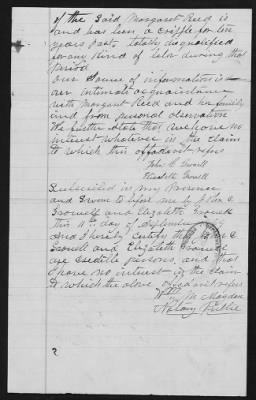 of the said Margaret Reed is
and has been a cripple for ten
years past totally disqualified
for any kind of labor during that
period
Our source of information is
our intimate acquaintance
with Margaret Reed and her family
and from personal observation
We further state that we have no
interest whatever in the claim
to which this affidavit refers
John C
Elizabeth
Subscribed in my presence
and sworn to before me by John C
and Elizabeth
this 11th day of September
and I hereby certify that John C
and Elizabeth
are credible persons, and that
I have no interest in the claim
to which the above affidavit refers
Wm M
Notary Public
2